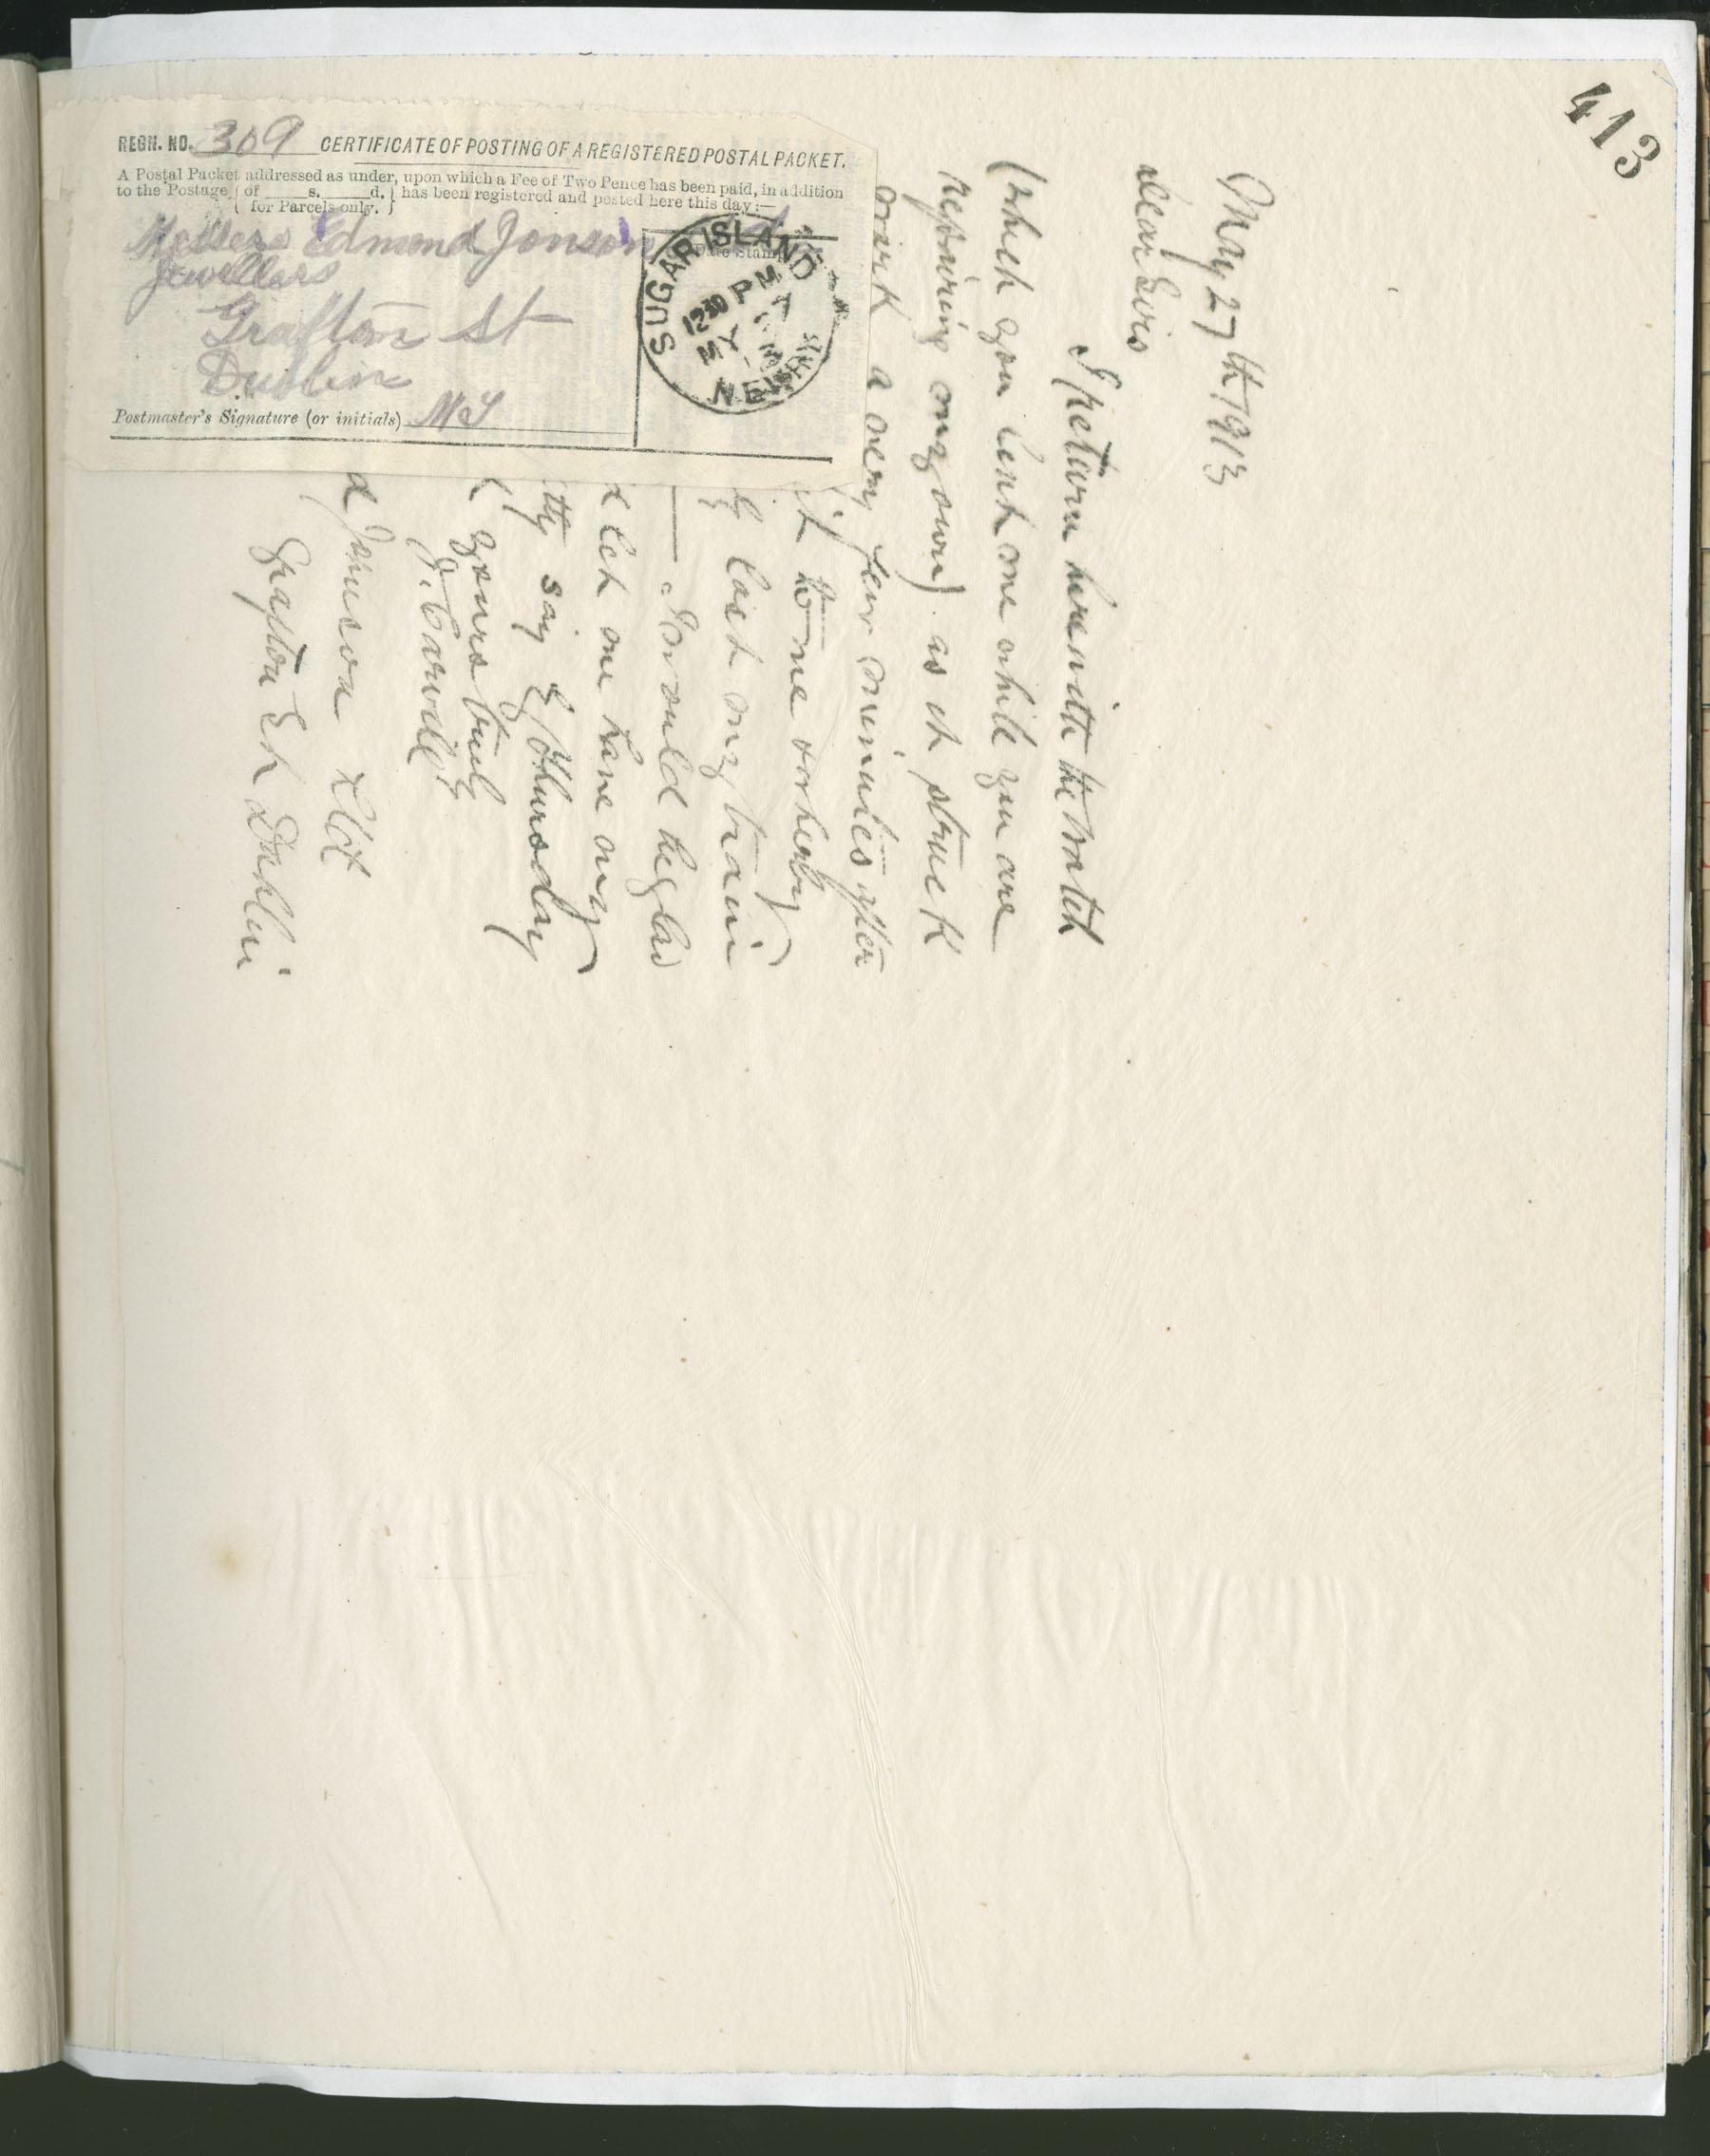 413
REGN. NO. 309 CERTIFICATE OF POSTING OF A REGISTERED POSTAL PACKET.
A Postal Packet addressed as under, upon which a Fee of Two Pence has been paid, in addition
to the Postage { of ____s. ____d. } has been registered and posted here this day:—
{ for Parcels only. }
Messers Edmond Jonson
Jewellers
Grafton St
Dublin
Date Stamp
SUGAR ISLAND
1230 PM
NE
Postmaster's Signature (or initials)
May 27th 1913
Dear Sirs
I return herewith the watch
(which you lent me while you are
repairing my own) as it struck
work a very few minutes after
it to me & hereby
lost my train
— I would be glad
let me have my
say by Thursday
yours truly
d Johnson Ltd
Grafton St Dublin